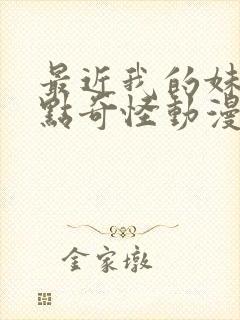 最近我的妹
點奇怪動漫
金家墩